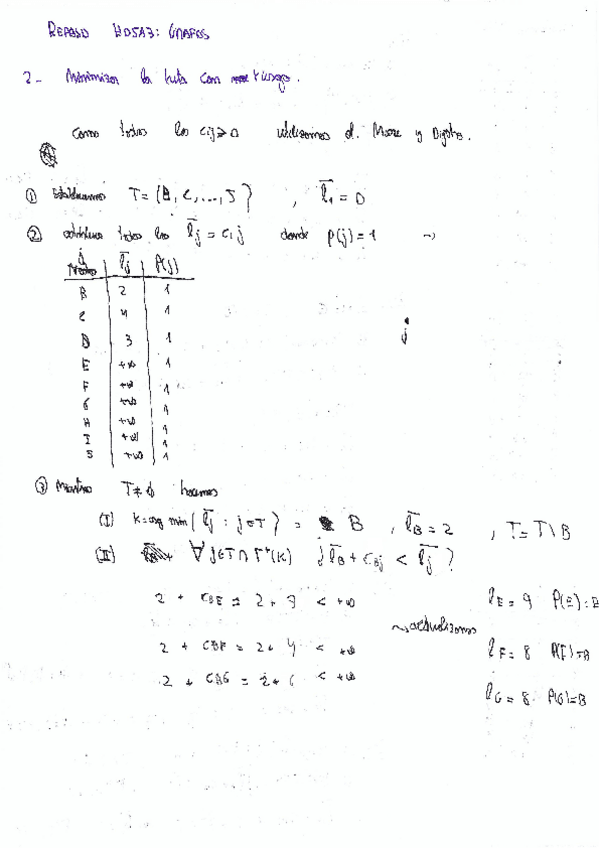 REPASO HOJA3: GRAFOS
2- Minimizar la ruta con riesgo.
Como todos los cij≥0 utilizamos el. Moore y Dijstra.
① Establecemos T={B, C, ..., J} , l̄1 = 0
② todos los l̄j = c1j donde p(j)=1 ~>
j
Nodo | l̄j | P(j)
B 2 1
C 4 1
D 3 1
E +∞ 1
F +∞ 1
G +∞ 1
H +∞ 1
I +∞ 1
J +∞ 1
j
③ Mientras T≠∅ hacemos
(I) k=arg min{l̄j : j∈T} = B , l̄B = 2 , T=T\B
(II) ∀j∈T∩Γ+(K) ¿l̄B + cBj < l̄j ?
2 + CBE = 2+7 < +∞
~> actualizamos
lE = 9 P(E)=B
2 + CBF = 2+ 4 < +∞
lF = 8 P(F)=B
2 + CBG = 2+ 6 < +∞
lG = 8 P(G)=B